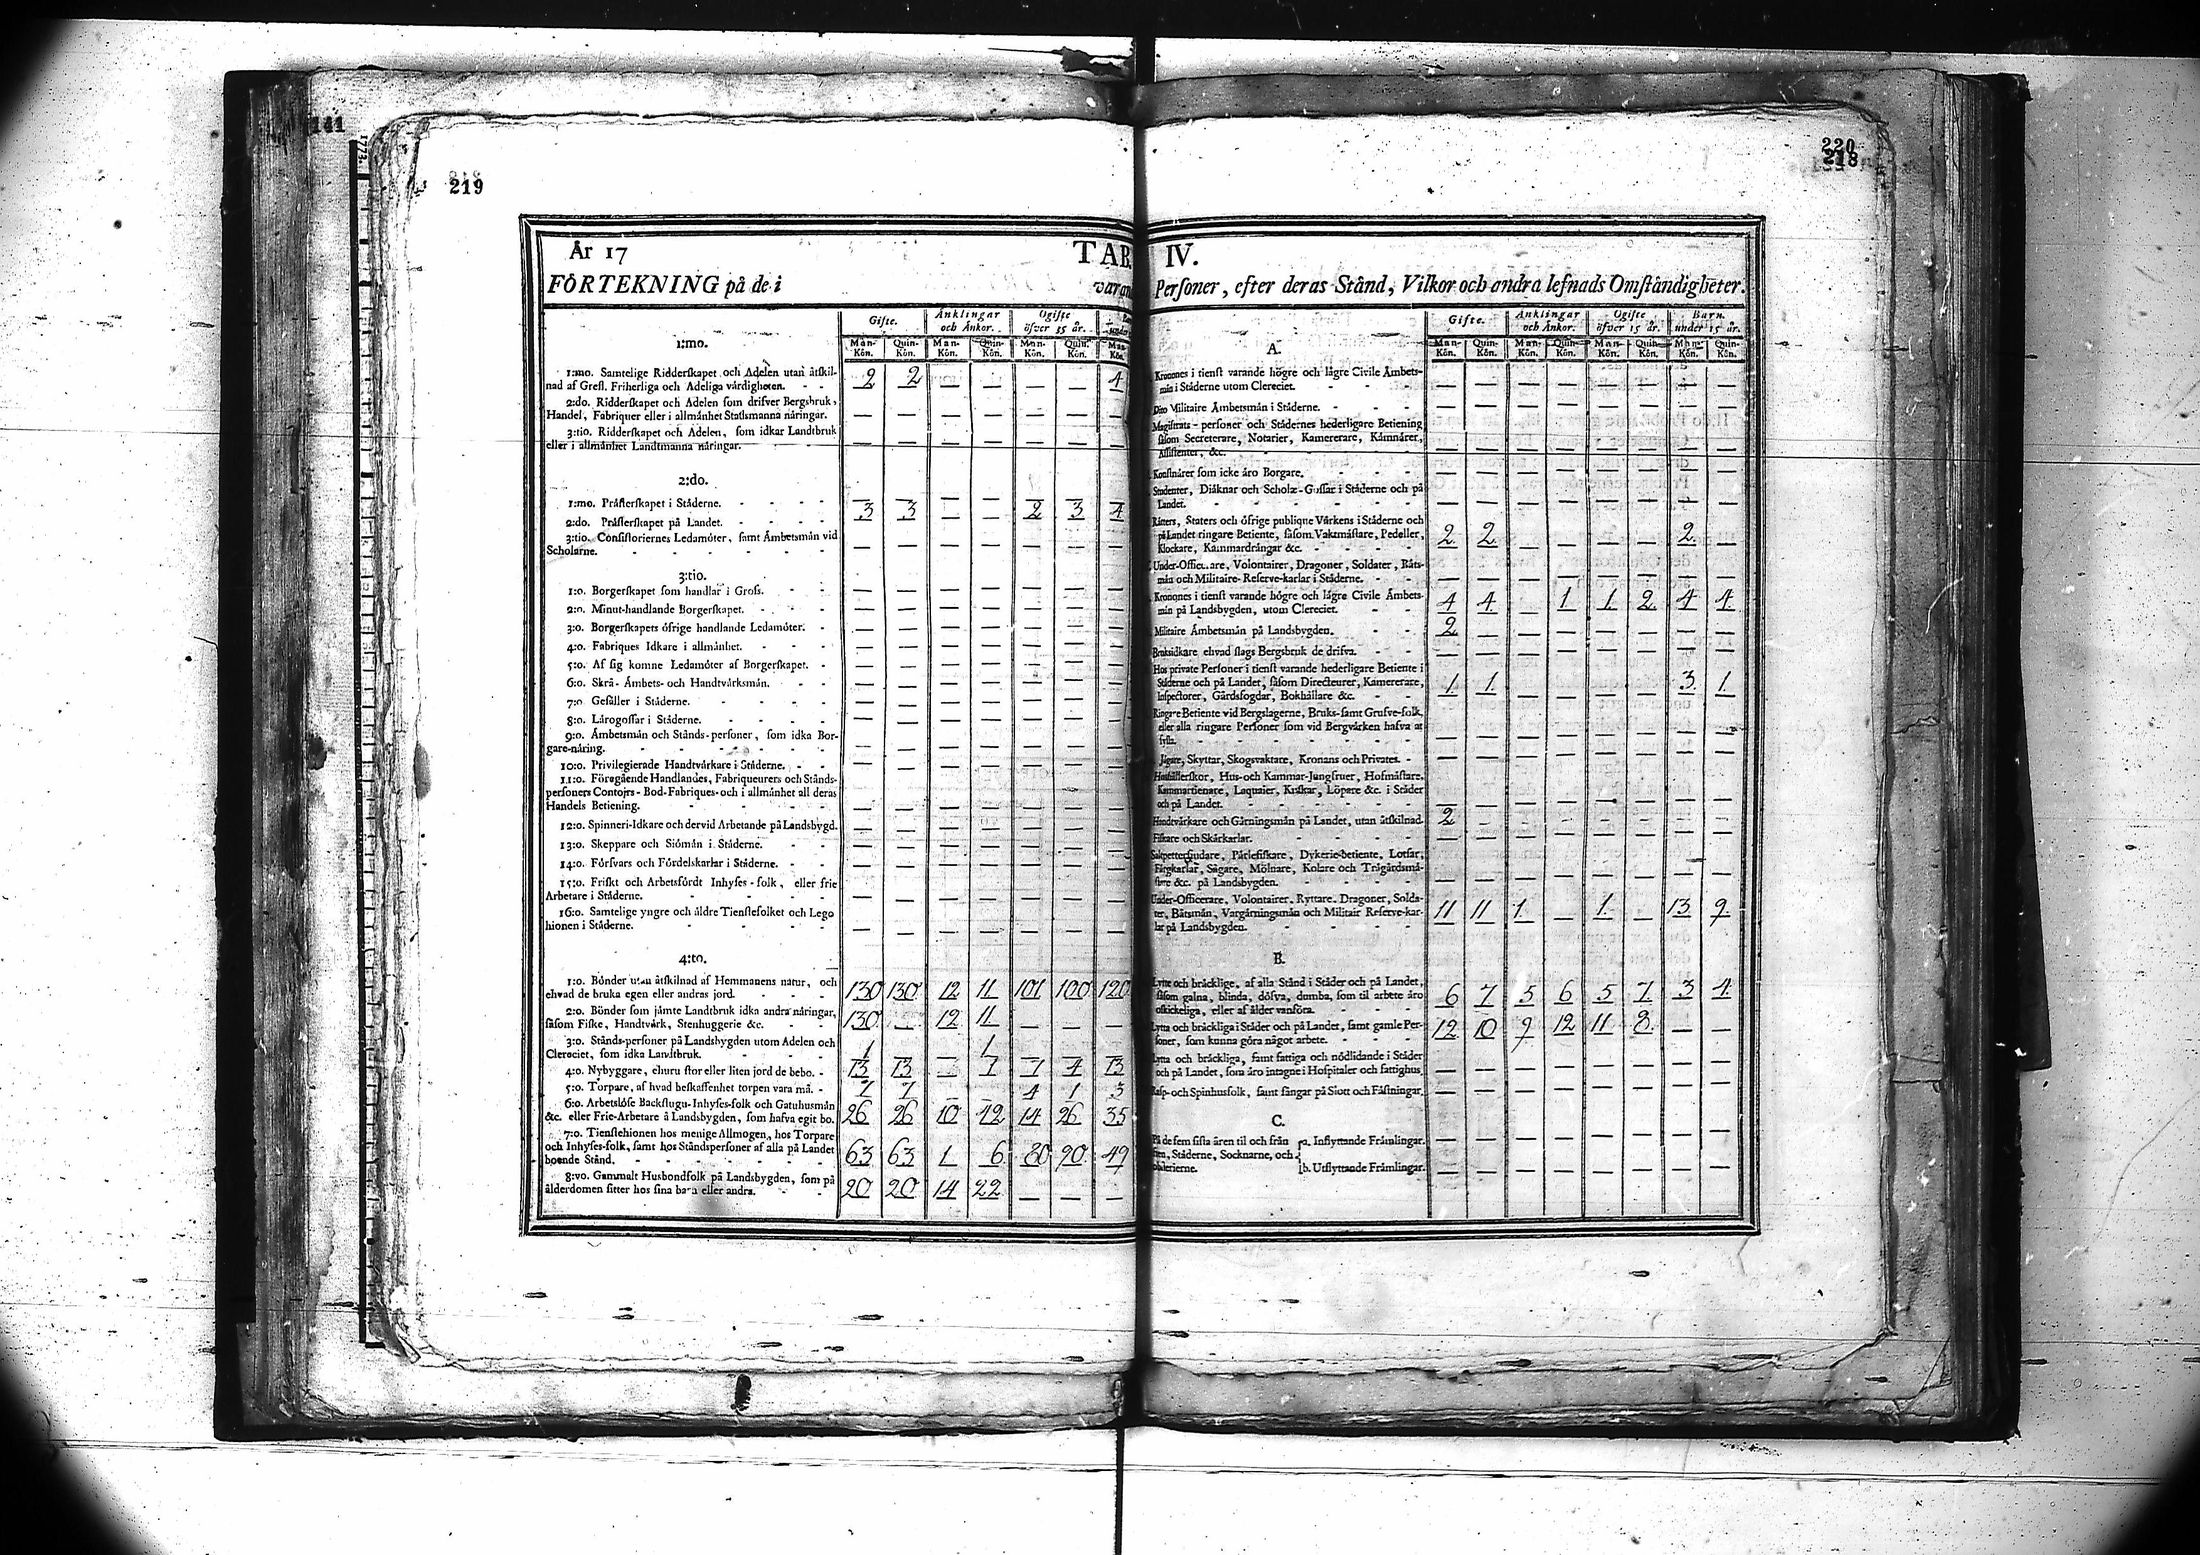 141
1773.
219
År 17 TAB.
FÖRTEKNING på de i varan
Gifte. Änklingar och Änkor. Ogifte öfver 15 år.
1:mo. Man-Kön. Quin-Kön. Man-Kön. Quin-Kön. Man-Kön. Quin-Kön. Man-Kön.
1:mo. Samtelige Ridderskapet och Adelen utan åtskil-
nad af Grefl. Friherliga och Adeliga värdigheten. - - 2 2 — — — — 4
2:do. Ridderskapet och Adelen som drifver Bergsbruk,
Handel, Fabriquer eller i allmånhet Statsmanna näringar. — — — — — — —
3:tio. Ridderskapet och Adelen, som idkar Landtbruk
eller i allmånhet Landtmanna näringar. — — — — — — —
2:do.
1:mo. Prästerskapet i Städerne. — — — — — — —
2:do. Prästerskapet på Landet. 3 3 — — 2 3 4
3:tio. Consistoriernes Ledamöter, samt Ämbetsmän vid
Scholarne. — — — — — — —
3:tio.
1:o. Borgerskapet som handlar i Gross. — — — — — — —
2:o. Minut-handlande Borgerskapet. — — — — — — —
3:o. Borgerskapets öfrige handlande Ledamöter. — — — — — — —
4:o. Fabriques Idkare i allmänhet. — — — — — — —
5:o. Af sig komne Ledamöter af Borgerskapet. — — — — — — —
6:o. Skrå- Ämbets- och Handtvärksmän. — — — — — — —
7:o Gesäller i Städerne. — — — — — — —
8:o. Lärogossar i Städerne. — — — — — — —
9:o. Ämbetsmän och Stånds-personer, som idka Bor-
gare-näring. — — — — — — —
10:o. Privilegierade Handtvärkare i Städerne. — — — — — — —
11:o. Föregående Handlandes, Fabriqueurers och Stånds-
personers Contoirs - Bod-Fabriques- och i allmänhet all deras
Handels Betiening. — — — — — — —
12:o. Spinneri-Idkare och dervid Arbetande på Landsbygd. — — — — — — —
13:o. Skeppare och Siömän i Städerne. — — — — — — —
14:o. Försvars och Fördelskarlar i Städerne. — — — — — — —
15:o. Friskt och Arbetsfördt Inhyses-folk, eller frie
Arbetare i Städerne. — — — — — — —
16:o. Samtelige yngre och äldre Tienstefolket och Lego
hionen i Städerne. — — — — — — —
4:to.
1:o. Bönder utan åtskilnad af Hemmanens natur, och
ehvad de bruka egen eller andras jord. 130 130 12 11 101 100 120
2:o. Bönder som jämte Landtbruk idka andra näringar,
såsom Fiske, Handtvärk, Stenhuggerie &c. 130 — 12 11 — — —
3:o. Stånds-personer på Landsbygden utom Adelen och
Clereciet, som idka Landtbruk. 1 1
4:o. Nybyggare, ehuru stor eller liten jord de bebo. - 13 13 — 1 7 4 13
5:o. Torpare, af hvad beskaffenhet torpen vara må. - 7 7 — — 4 1 3
6:o. Arbetslöse Backstugu-Inhyses-folk och Gatuhusmän
&c. eller Frie-Arbetare å Landsbygden, som hafva egit bo. 26 26 10 12 14 26 35
7:o. Tienstehionen hos menige Allmogen, hos Torpare
och Inhyses-folk, samt hos Ståndspersoner af alla på Landet
boende Stånd. 63 63 1 6 80 90 49
8:vo. Gammalt Husbondfolk på Landsbygden, som på
ålderdomen sitter hos sina barn eller andra. 20 20 14 22 — — —
220
218
IV.
Personer, efter deras Stånd, Vilkor och andra lefnads Omständigheter.
Gifte. Änklingar och Änkor. Ogifte öfver 15 år. Barn under 15 år.
A. Man-Kön. Quin-Kön. Man-Kön. Quin-Kön. Man-Kön. Quin-Kön. Man-Kön. Quin-Kön.
Kronones i tienst varande högre och lägre Civile Ämbets-
män i Städerne utom Clereciet. — — — — — — — —
Dito Militaire Ämbetsmän i Städerne. — — — — — — — —
Magistrats - personer och Städernes hederligare Betiening
såsom Secreterare, Notarier, Kamererare, Kämnärer,
Assistenter, &c. — — — — — — — —
Konstnärer som icke äro Borgare. — — — — — — — —
Studenter, Diäknar och Scholæ-Gossar i Städerne och på
Landet. — — — — — — — —
Rätters, Staters och öfrige publique Värkens i Städerne och
på Landet ringare Betiente, såsom Vaktmästare, Pedeller,
Klockare, Kammardrängar &c. 2 2 — — — — 2 —
Under-Officerare, Volontairer, Dragoner, Soldater, Båts-
män och Militaire-Reserve-karlar i Städerne. — — — — — — — —
Kronones i tienst varande högre och lägre Civile Ämbets-
män på Landsbygden, utom Clereciet. 4 4 — 1 1 2 4 4
Militaire Ämbetsmän på Landsbygden. 2 — — — — — — —
Bruksidkare ehvad slags Bergsbruk de drifva. — — — — — — — —
Hos private Personer i tienst varande hederligare Betiente i
Städerne och på Landet, såsom Directeurer, Kamererare,
Inspectorer, Gårdsfogdar, Bokhållare &c. 1 1 — — — — 3 1
Ringare Betiente vid Bergslagerne, Bruks- samt Grufve-folk,
eller alla ringare Personer som vid Bergvärken hafva at
sysla. — — — — — — — —
Jägare, Skyttar, Skogsvaktare, Kronans och Privates. — — — — — — — —
Hushållerskor, Hus- och Kammar-Jungfruer, Hofmästare,
Kammartienare, Laquaier, Kuskar, Löpare &c. i Städer
och på Landet. — — — — — — — —
Handtvärkare och Gärningsmän på Landet, utan åtskilnad. 2 — — — — — — —
Fiskare och Skärkarlar. — — — — — — — —
Salpettersjudare, Pärlefiskare, Dykerie-betiente, Lotsar,
Färgkarlar, Sågare, Mölnare, Kolare och Trägårdsmä-
stare &c. på Landsbygden. — — — — — — — —
Under-Officerare, Volontairer, Ryttare, Dragoner, Solda-
ter, Båtsmän, Vargärningsmän och Militair Reserve-kar-
lar på Landsbygden. 11 11 1 — 1 — 13 9
B.
Lytte och bräcklige, af alla Stånd i Städer och på Landet,
såsom galna, blinda, döfva, dumba, som til arbete äro
oskickeliga, eller af ålder vanföra. 6 7 5 6 5 7 3 4
Lytta och bräckliga i Städer och på Landet, samt gamle Per-
soner, som kunna göra något arbete. 12 10 9 12 11 8 — —
Lytta och bräckliga, samt fattiga och nödlidande i Städer
och på Landet, som äro intagne i Hospitaler och fattighus. — — — — — — — —
Rasp- och Spinhusfolk, samt fångar på Slott och Fästningar. — — — — — — — —
C.
På de fem sista åren til och från a. Inflyttande Främlingar. — — — — — — — —
Städerne, Socknarne, och
b. Utflyttande Främlingar. — — — — — — — —